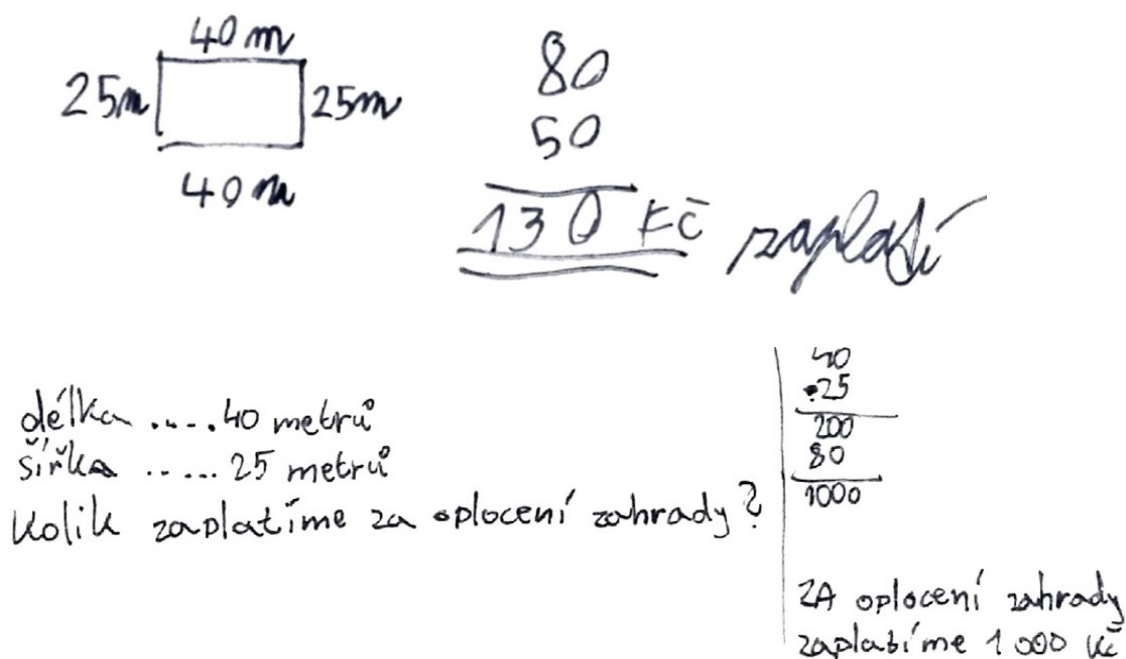 40 m
25m 25m
40 m
80
50
130 Kč zaplatí
délka ..... 40 metrů
šířka ...... 25 metrů
Kolik zaplatíme za oplocení zahrady?
40
·25
200
80
1000
ZA oplocení zahrady
zaplatíme 1 000 Kč